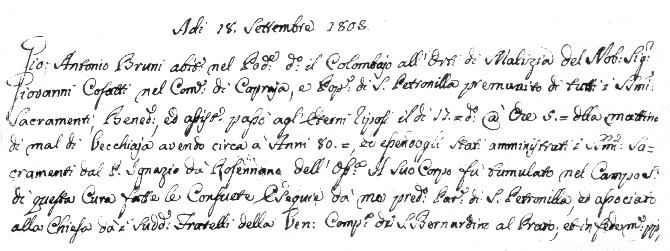 Adi 18. Settembre 1808.
Gio: Antonio Bruni abit.e nel Pod.e d.o il Colombajo all'Arti di Malizia del Nob: Sig:
Giovanni Cosatti nel Com.e di Capraja, e Pop.o di S. Petronilla premunito di tutti i SSmi:
Sacramenti, Bened.e, ed assist.o passò agl'Eterni riposi il dì 17.= d.o @ Ore 5.= della mattina
di mal di Vecchiaja avendo circa a Anni 80.=, ed essendogli stati amministrati i SSmi: Sa-
cramenti dal P. Ignazio da Rofennano dell'Oss.a Il suo Corpo fù tumulato nel Camposo.
di questa Cura fatte le Consuete Esequie da me pred.o Par.o di S. Petronilla, ed associato
alla Chiesa da i Sudd.i Fratelli della Ven: Comp.a di S. Bernardino al Prato; et in fede m.o pp.